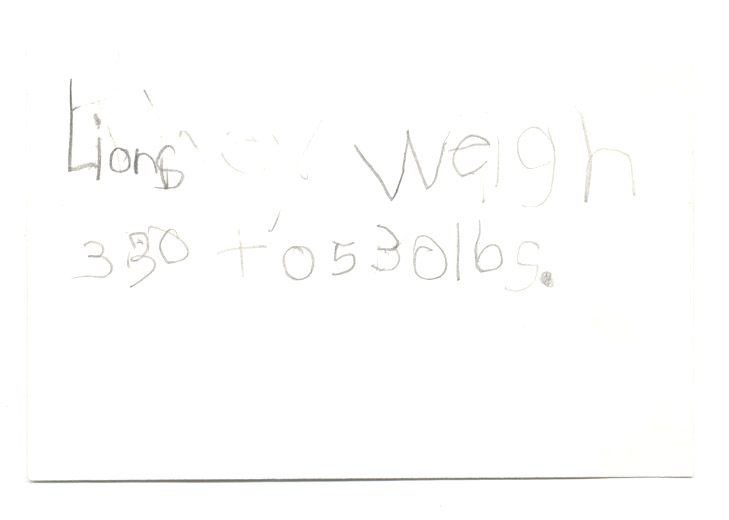 Lions weigh
330 to 530 lbs.